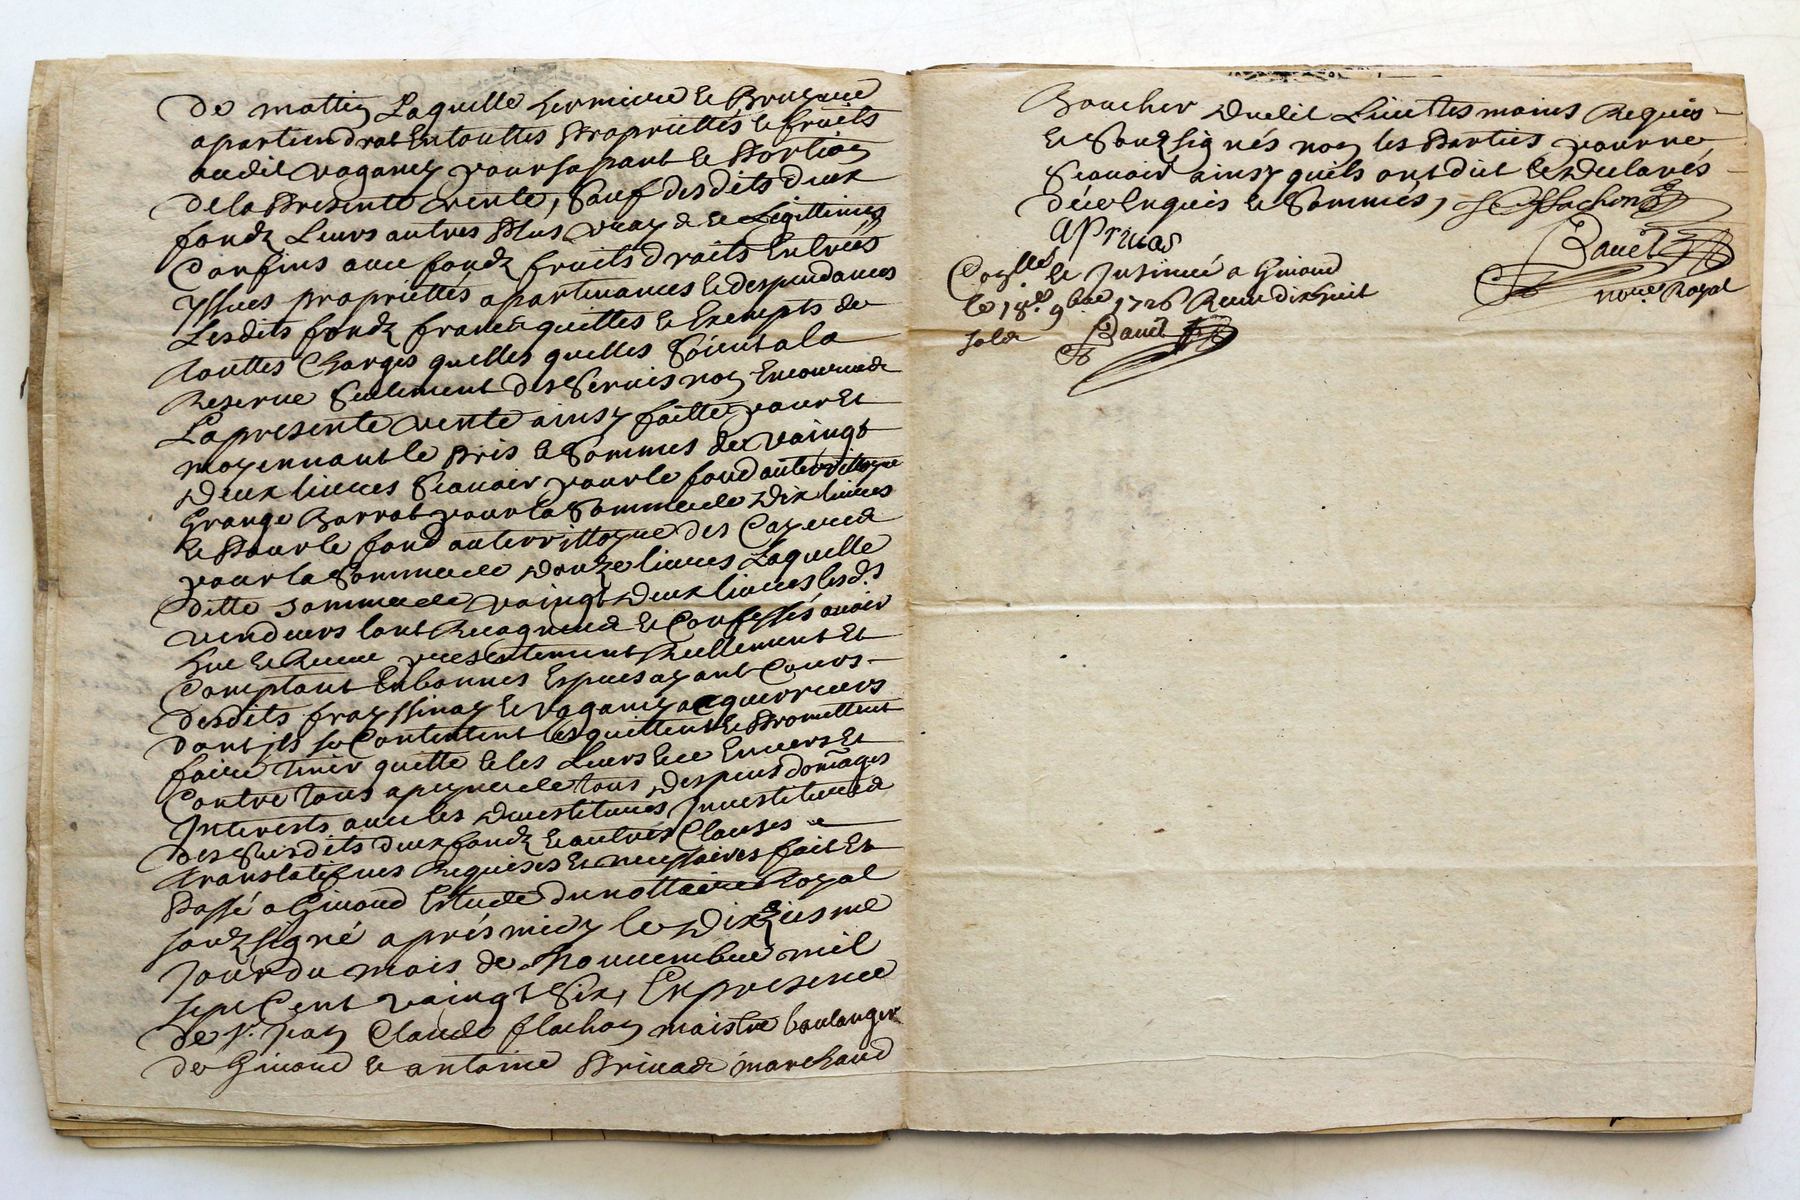 de mattin Laquelle hermiere et Brugiere
apartiendrat En touttes Proprietés et fruits
audit vaganey pour sa part et Portion
de la Presente vente, Sauf desdits deux
fondz Leurs autres Plus vray et Legittimes
Confins avec fondz fruits droits Entrées
yssues proprietés apartenances et despendances
Lesdits fondz francs quittes et Exempts de
touttes Charges quelles quelles Soient a la
Reserve Seulement des Servis non Encourus
La presente vente ainsy faitte pour Et
moyennant le Pris et Sommes de vaingt
deux livres Scavoir pour le fond au territoyre
Grange Barrat pour la Somme de dix livres
et Pour le fond au territoyre des
pour la Somme de douze livres Laquelle
ditte Somme de vaingt deux livres les d.s
vendeurs l'ont Recognus et Confessés avoir
Heu et Receue presentement Reellement Et
Comptant En bonnes Espuces ayant Cours
desdits frayssinay et vaganey acquerreurs
dont ils se Contentent les quittent et Promettent
faire tenir quitte et les Leurs Envers Et
Contre tous a peyne de tous despens domages
Interests avec les devestitures Investitures
des Susdits deux fondz et autres Clauses
translatifves Requises et necessaires fait Et
Passé a Givord Estude du nottaire Royal
Souzsigné aprés midy le dixiesme
Jour du mois de Nouvembre mil
Sept Cent vaingt Six, En presence
de Sr. Jean Claude flachon maistre boulanger
de Givord et antoine Privas marchand
Boucher dudit Lieu tesmoins Requis
et Souzsignés non les Parties pour ne
Scavoir ainsy quils ont dit et declarés
de ce Enquis et Sommés, J C flachon
A Privas
Bauet
no.re Royal
Con.llé et Insinué a Givord
le 18.e 9bre 1726 Receu dix huit
Sols Bauet